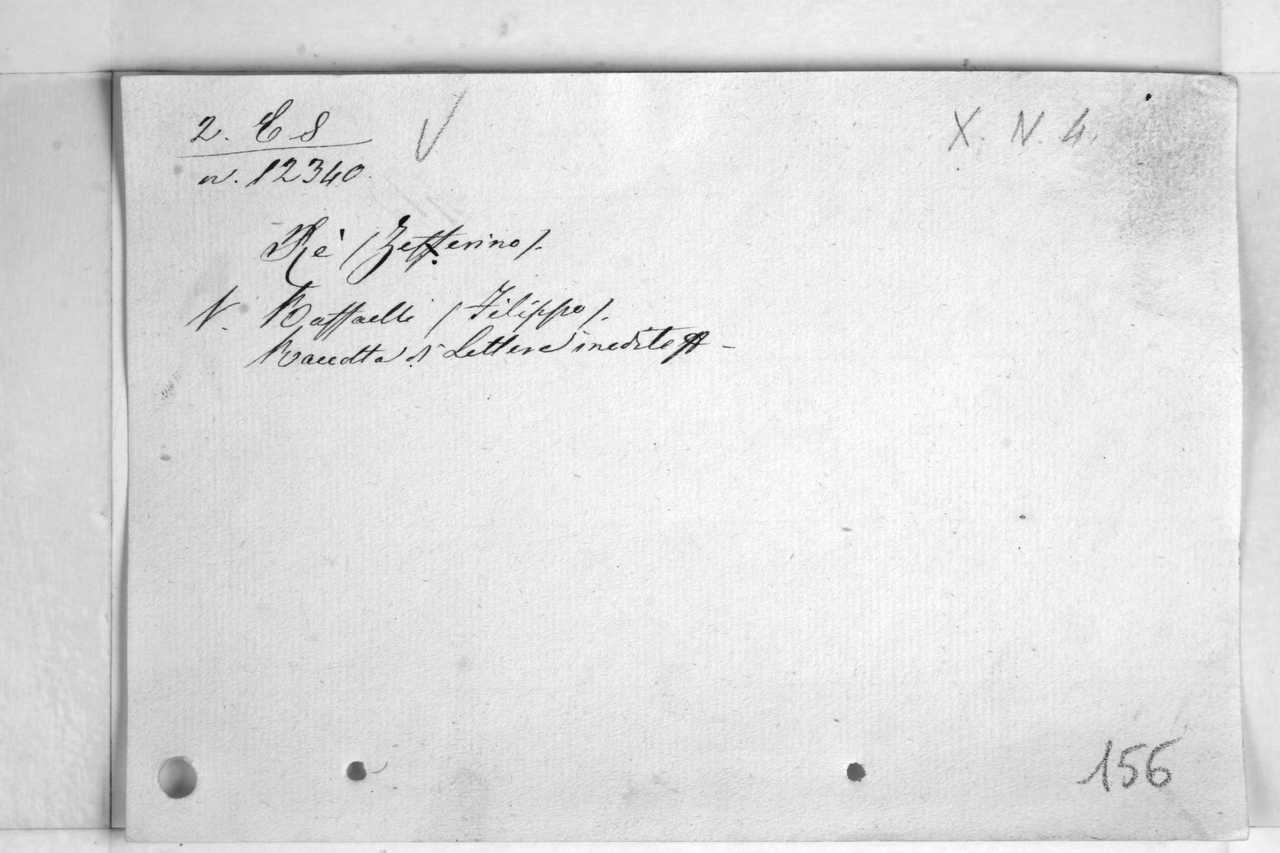 2. E 8 V X. N. 4.
n. 12340.
Rè (Zefferino).
V. Raffaelli (Filippo).
Raccolta di Lettere inedite
156